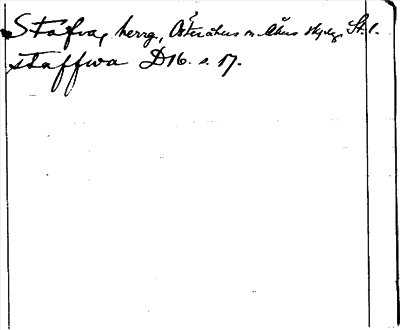 Stafva, herrg., Österåkers sn Åkers skplg. St. l.
staffwa D16. s. 17.